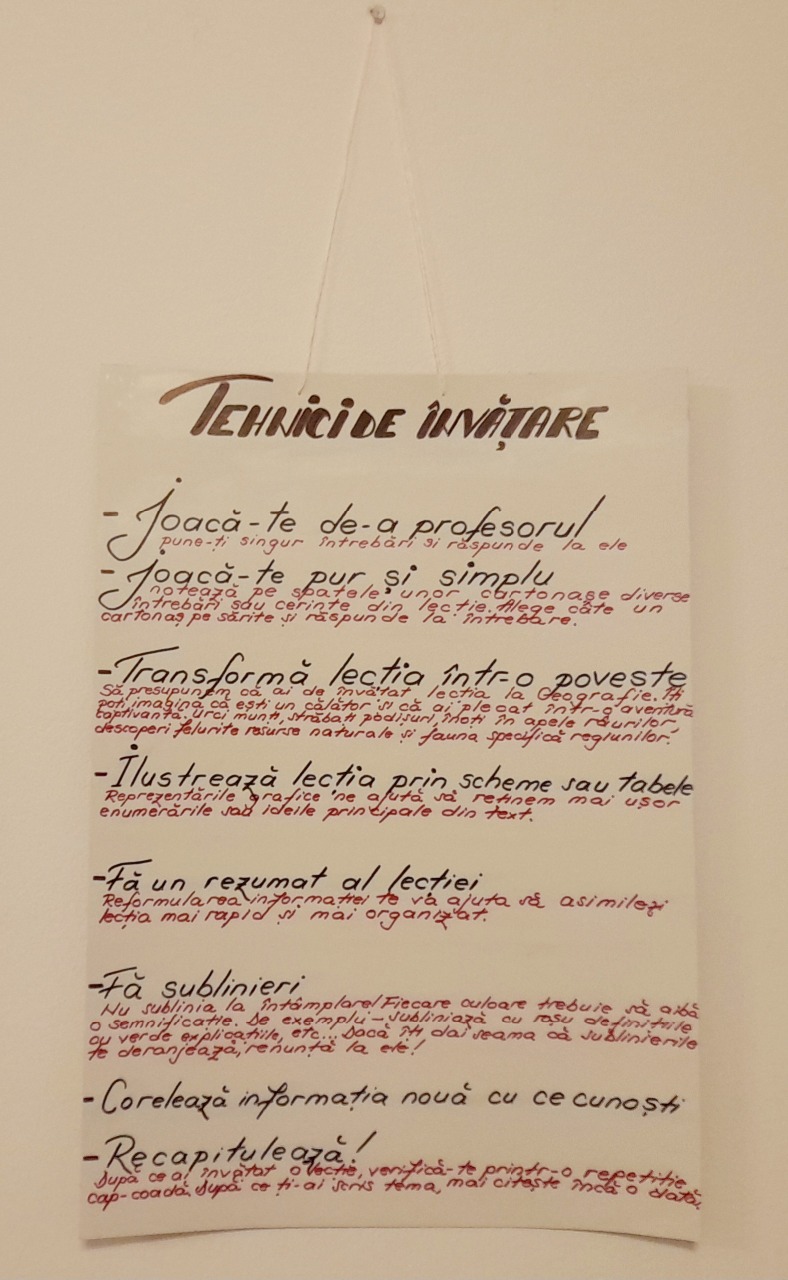 TEHNICI DE ÎNVĂȚARE
- Joacă-te de-a profesorul
pune-ți singur întrebări și răspunde la ele
- Joacă-te pur și simplu
notează pe spatele unor cartonașe diverse
întrebări sau cerințe din lecție. Alege câte un
cartonaș pe sărite și răspunde la întrebare.
- Transformă lecția într-o poveste
Să presupunem că ai de învățat lecția la Geografie. Îți
poți imagina că ești un călător și că ai plecat într-o aventură
captivantă. Urci munți, străbați podișuri, înoți în apele râurilor
descoperi felurite resurse naturale și fauna specifică regiunilor.
- Ilustrează lecția prin scheme sau tabele
Reprezentările grafice ne ajută să reținem mai ușor
enumerările sau ideile principale din text.
- Fă un rezumat al lecției
Reformularea informației te va ajuta să asimilezi
lecția mai rapid și mai organizat.
- Fă sublinieri
Nu sublinia la întâmplare! Fiecare culoare trebuie să aibă
o semnificație. De exemplu - subliniază cu roșu definițiile
cu verde explicațiile, etc... Dacă îți dai seama că sublinierile
te deranjează, renunță la ele!
- Corelează informația nouă cu ce cunoști
- Recapitulează!
După ce ai învățat o lecție, verifică-te printr-o repetiție
cap-coadă. După ce ți-ai scris tema, mai citește încă o dată.